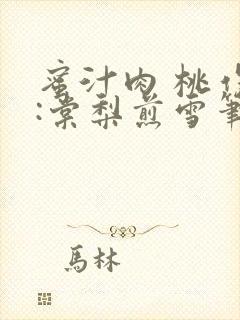 蜜汁肉桃
:棠梨煎雪筆
馬林